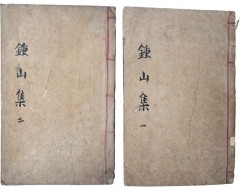 鍾山集
一
鍾山集
二